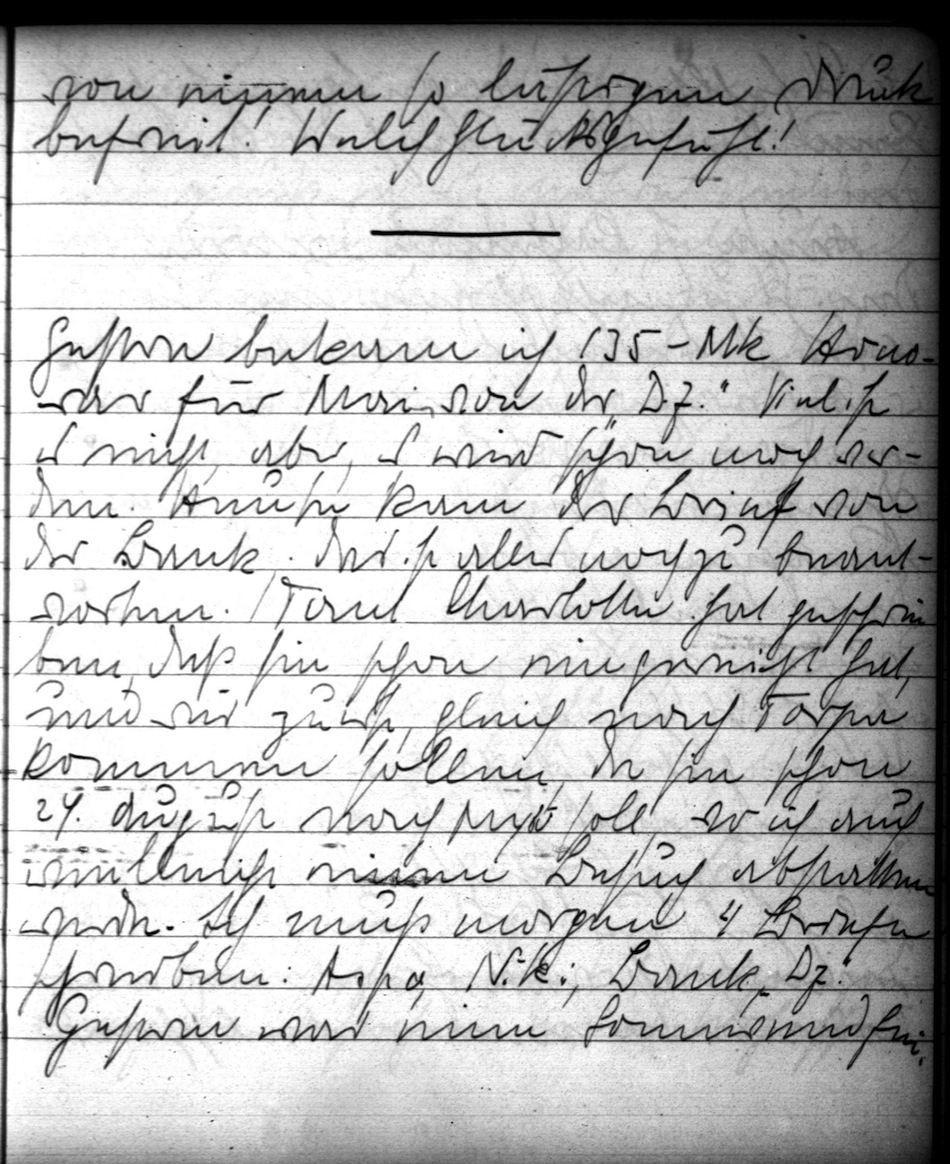 von einem so lastigen Druck
befreit! Welch Glücksgefühl!
Gestern bekam ich 135 - Mk Hono-
rar für Mai von der „D.Z." Viel ist
es nicht, aber, es wird schon noch wer-
den. Heute kam der Brief von
der Bank. Das ist alles noch zu beant-
worten. Tant Charlotte hat geschrie
ben, daß sie schon eingereicht hat,
und wir zuerst, gleich nach
kommen sollen, da sie schon
24. August nach soll, wo ich auch
vielleicht meinen Besuch abstatten
werde. Ich muß morgen 4 Briefe
schreiben: N.k.; Bank, Dz.
Gestern war eine Sonnwendfei.